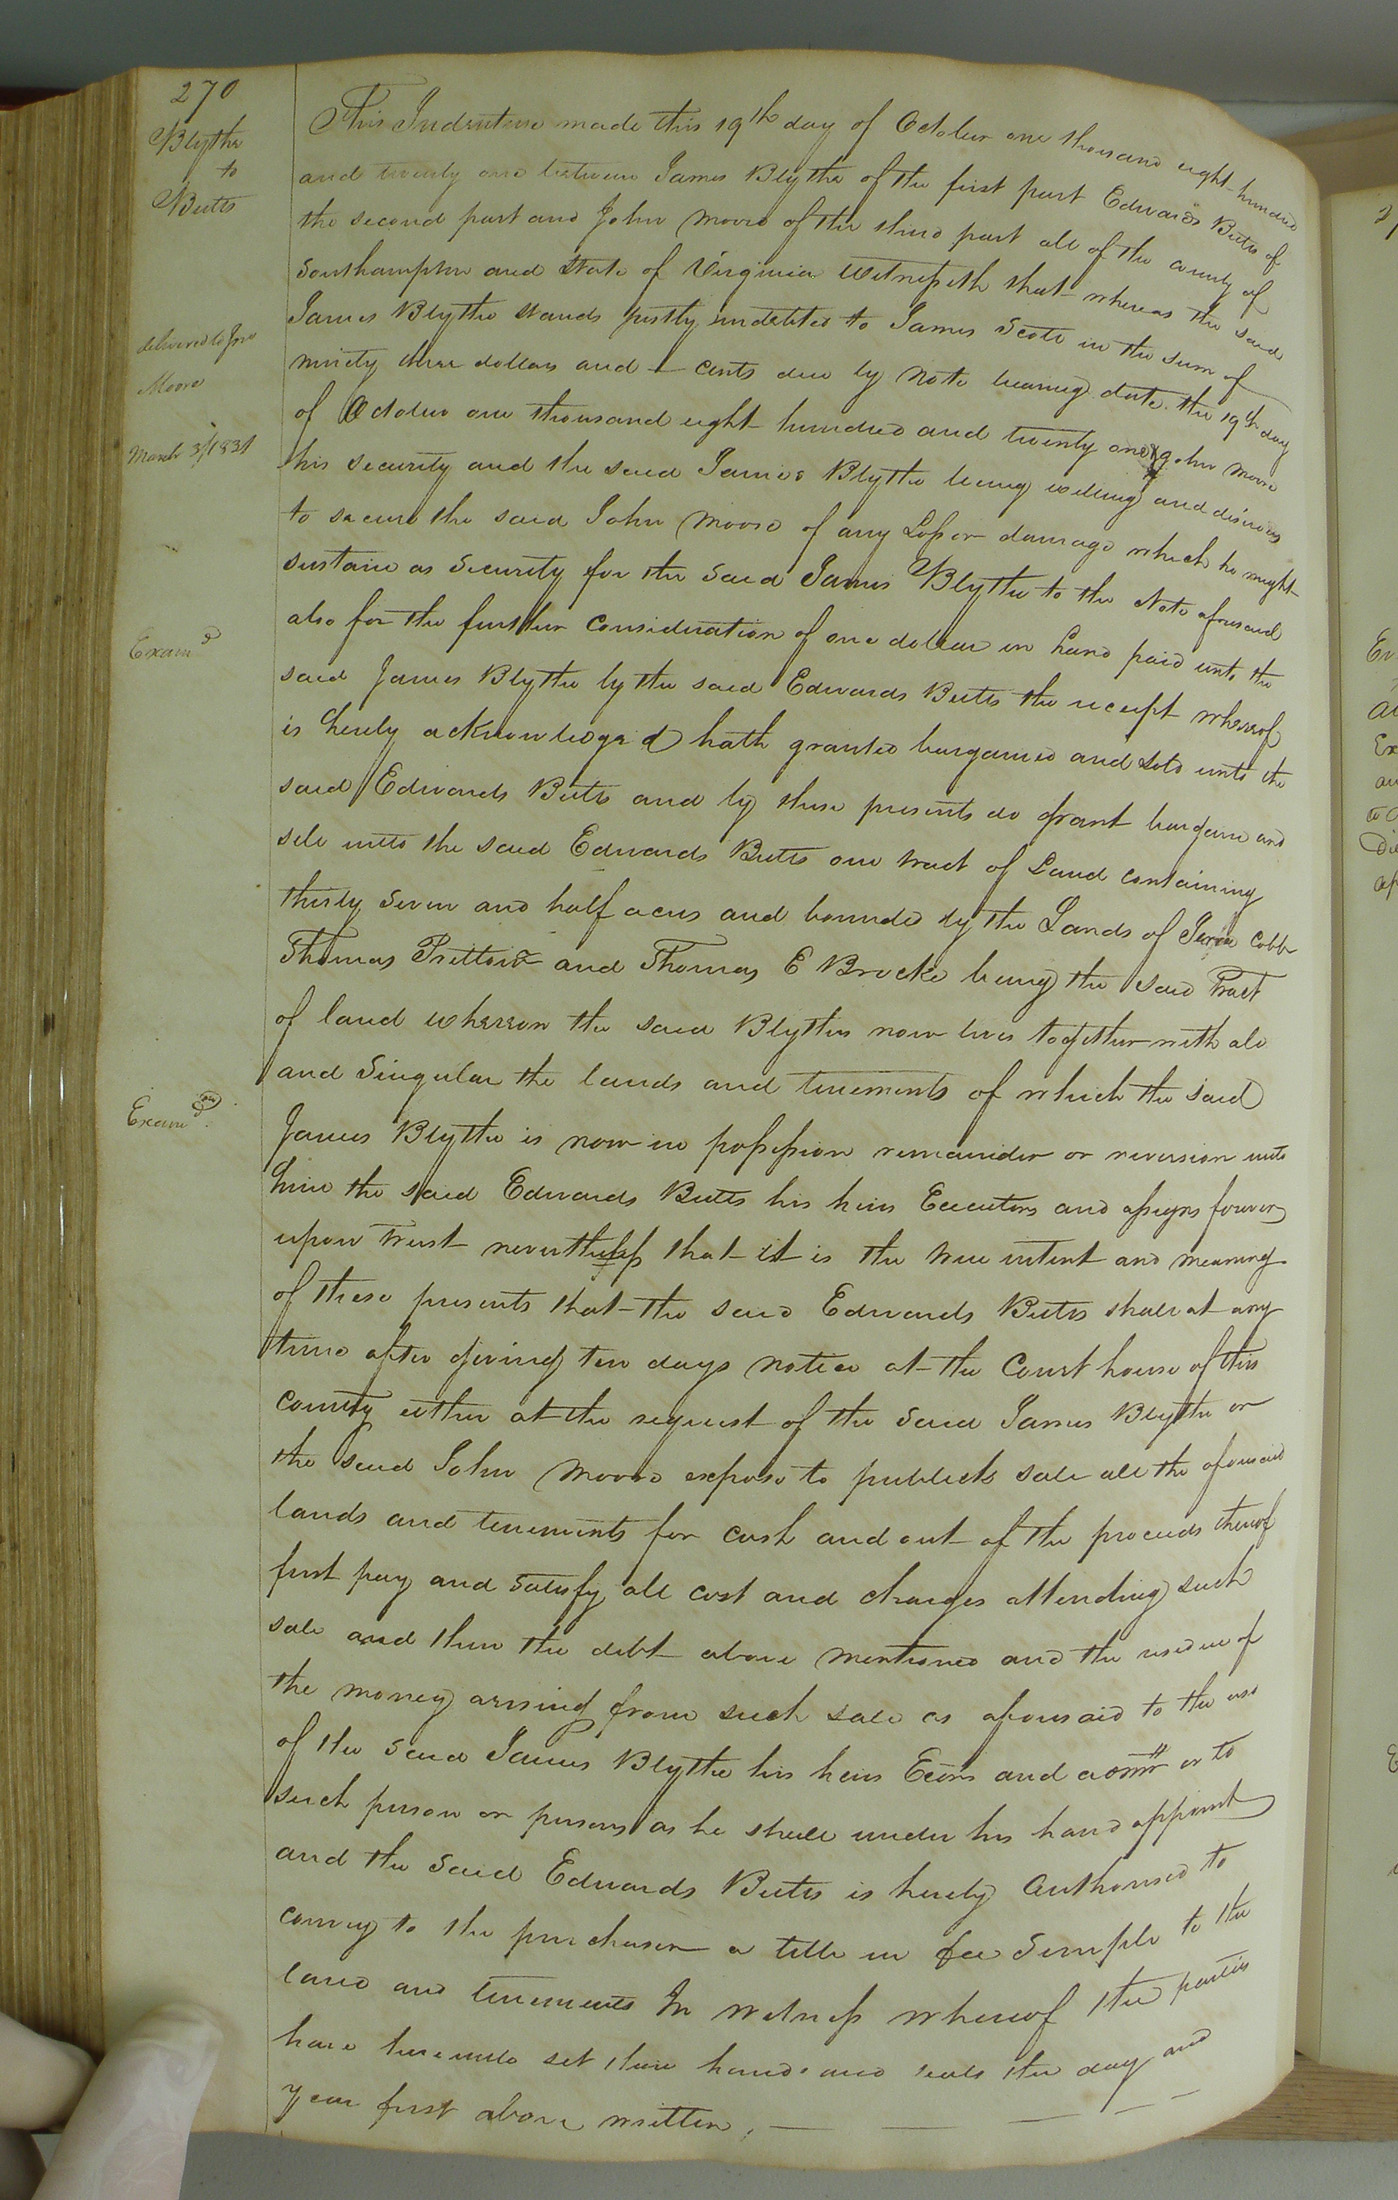 270
Blythe
to
Butts
delivered to Jno
Moore
March 3/1831
Examd
Examd
This Indenture made this 19th day of October one thousand eight hundred
and twenty one between James Blythe of the first part Edwards Butts of
the second part and John Moore of the third part all of the county of
Southampton and State of Virginia Witnesseth that whereas the said
James Blythe stands justly indebted to James Scott in the sum of
ninety three dollars and — cents due by Note bearing date the 19th day
of October one thousand eight hundred and twenty one John Moore
his security and the said James Blythe being willing and desirous
to secure the said John Moore of any Loss or damage which he might
sustain as Security for the said James Blythe to the Note aforesaid
also for the further consideration of one dollar in hand paid unto the
said James Blythe by the said Edwards Butts the receipt whereof
is hereby acknowledged hath granted bargained and sold unto the
said Edwards Butts and by these presents do grant bargain and
sell unto the said Edwards Butts one tract of Land containing
thirty Seven and half acres and bounded by the Lands of Cobb
Thomas Pretlow and Thomas E Brocke being the said Tract
of land whereon the said Blythe now lives together with all
and Singular the lands and tenements of which the said
James Blythe is now in possession remainder or reversion unto
him the said Edwards Butts his heirs Executors and assigns forever
upon trust nevertheless that it is the true intent and meaning
of these presents that the said Edwards Butts shall at any
time after giving ten days notice at the Court house of this
county either at the request of the said James Blythe or
the said John Moore expose to publick sale all the aforesaid
lands and tenements for cash and out of the proceeds thereof
first pay and Satisfy all cost and charges attending such
sale and then the debt above mentioned and the residue of
the money arising from such sale as aforesaid to the use
of the said James Blythe his heirs Exors and admrs or to
such person or persons as he shall under his hand appoint
and the said Edwards Butts is hereby Authorised to
convey to the purchaser a title in fee Simple to the
land and tenements In witness whereof the parties
have hereunto set their hands and seals the day and
year first above written.